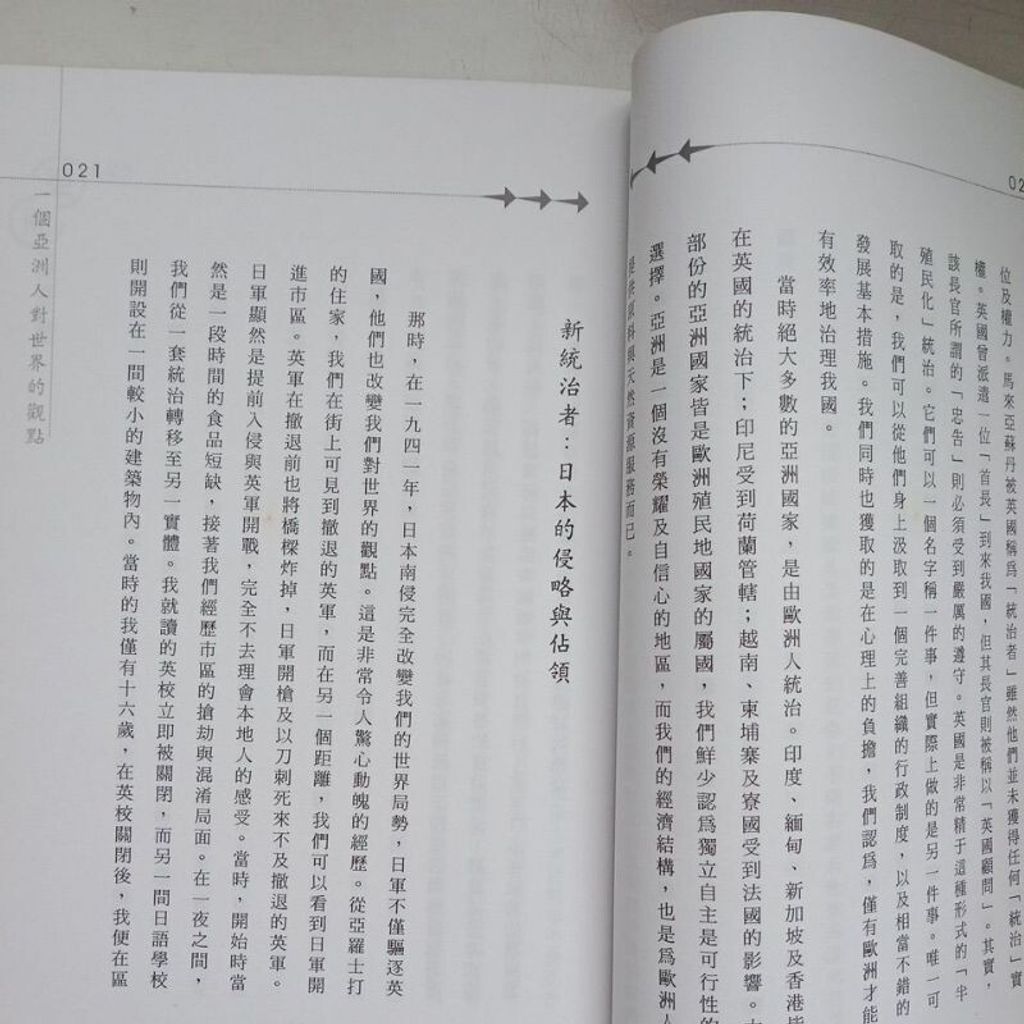 02
位及權力。馬來亞蘇丹被英國稱爲「統治者」雖然他們並未獲得任何「統治」實
權。英國曾派遣一位「首長」到來我國，但其長官則被稱以「英國顧問」。其實，
該長官所謂的「忠告」則必須受到嚴厲的遵守。英國是非常精于這種形式的「半
殖民化」統治。它們可以一個名字稱一件事，但實際上做的是另一件事。唯一可
取的是，我們可以從他們身上汲取到一個完善組織的行政制度，以及相當不錯的
發展基本措施。我們同時也獲取的是在心理上的負擔，我們認爲，僅有歐洲才能
有效率地治理我國。
當時絕大多數的亞洲國家，是由歐洲人統治。印度、緬甸、新加坡及香港皆
在英國的統治下；印尼受到荷蘭管轄；越南、柬埔寨及寮國受到法國的影響。
部份的亞洲國家皆是歐洲殖民地國家的屬國，我們鮮少認爲獨立自主是可行性的
選擇。亞洲是一個沒有榮耀及自信心的地區，而我們的經濟結構，也是爲歐洲人
提供原料與天然資源服務而已。
021
一個亞洲人對世界的觀點
新統治者：日本的侵略與佔領
那時，在一九四一年，日本南侵完全改變我們的世界局勢，日軍不僅驅逐英
國，他們也改變我們對世界的觀點。這是非常令人驚心動魄的經歷。從亞羅士打
的住家，我們在街上可見到撤退的英軍，而在另一個距離，我們可以看到日軍開
進市區。英軍在撤退前也將橋樑炸掉，日軍開槍及以刀刺死來不及撤退的英軍。
日軍顯然是提前入侵與英軍開戰，完全不去理會本地人的感受。當時，開始時當
然是一段時間的食品短缺，接著我們經歷市區的搶劫與混淆局面。在一夜之間，
我們從一套統治轉移至另一實體。我就讀的英校立即被關閉，而另一間日語學校
則開設在一間較小的建築物內。當時的我僅有十六歲，在英校關閉後，我便在區